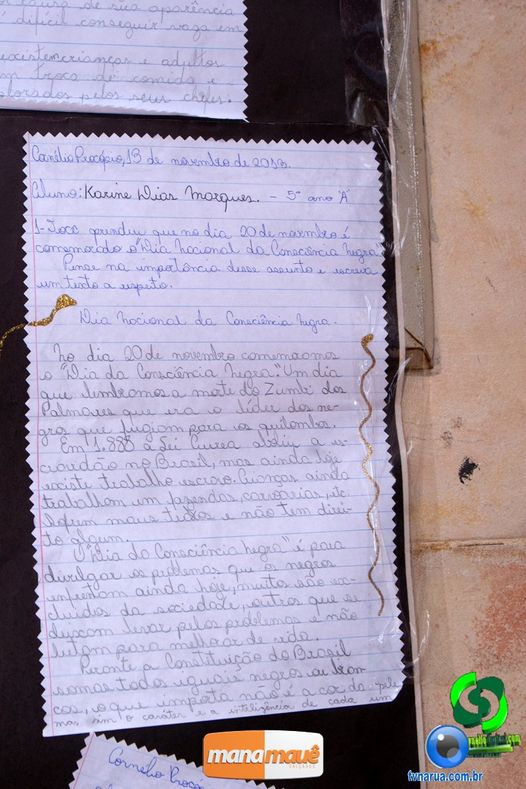 de sua aparência
difícil conseguir vaga em
crianças e adultos
em troca de comida e
explorados pelos seus chefes.
Cornélio Procópio, 13 de novembro de 2013.
Aluno: Karine Dias Marques. - 5º ano "A"
1- Você aprendeu que no dia 20 de novembro é
comemorado o "Dia Nacional da Consciência Negra".
Pense na importância desse assunto e escreva
um texto a respeito.
Dia Nacional da Consciência Negra.
No dia 20 de novembro comemoramos
o "Dia da Consciência Negra". Um dia
que lembramos a morte do Zumbi dos
Palmares que era o líder dos ne-
gros que fugiam para os quilombos.
Em 1.888 a Lei Áurea aboliu a es-
cravidão no Brasil, mas ainda hoje
existe trabalho escravo. Crianças ainda
trabalham em fazendas, carvoarias, etc.
Sofrem maus tratos e não tem direi-
to algum.
O "Dia da Consciência Negra" é para
divulgar os problemas que os negros
enfrentam ainda hoje, muitos são ex-
cluídos da sociedade, outros que se
deixam levar pelos problemas e não
lutam para melhorar de vida.
Perante a Constituição do Brasil
somos todos iguais negros ou bran-
cos, o que importa não é a cor da pele
mas sim o caráter e a inteligência de cada um
Cornélio Proco
manamauê
CALÇADOS
tvnarua.com.br